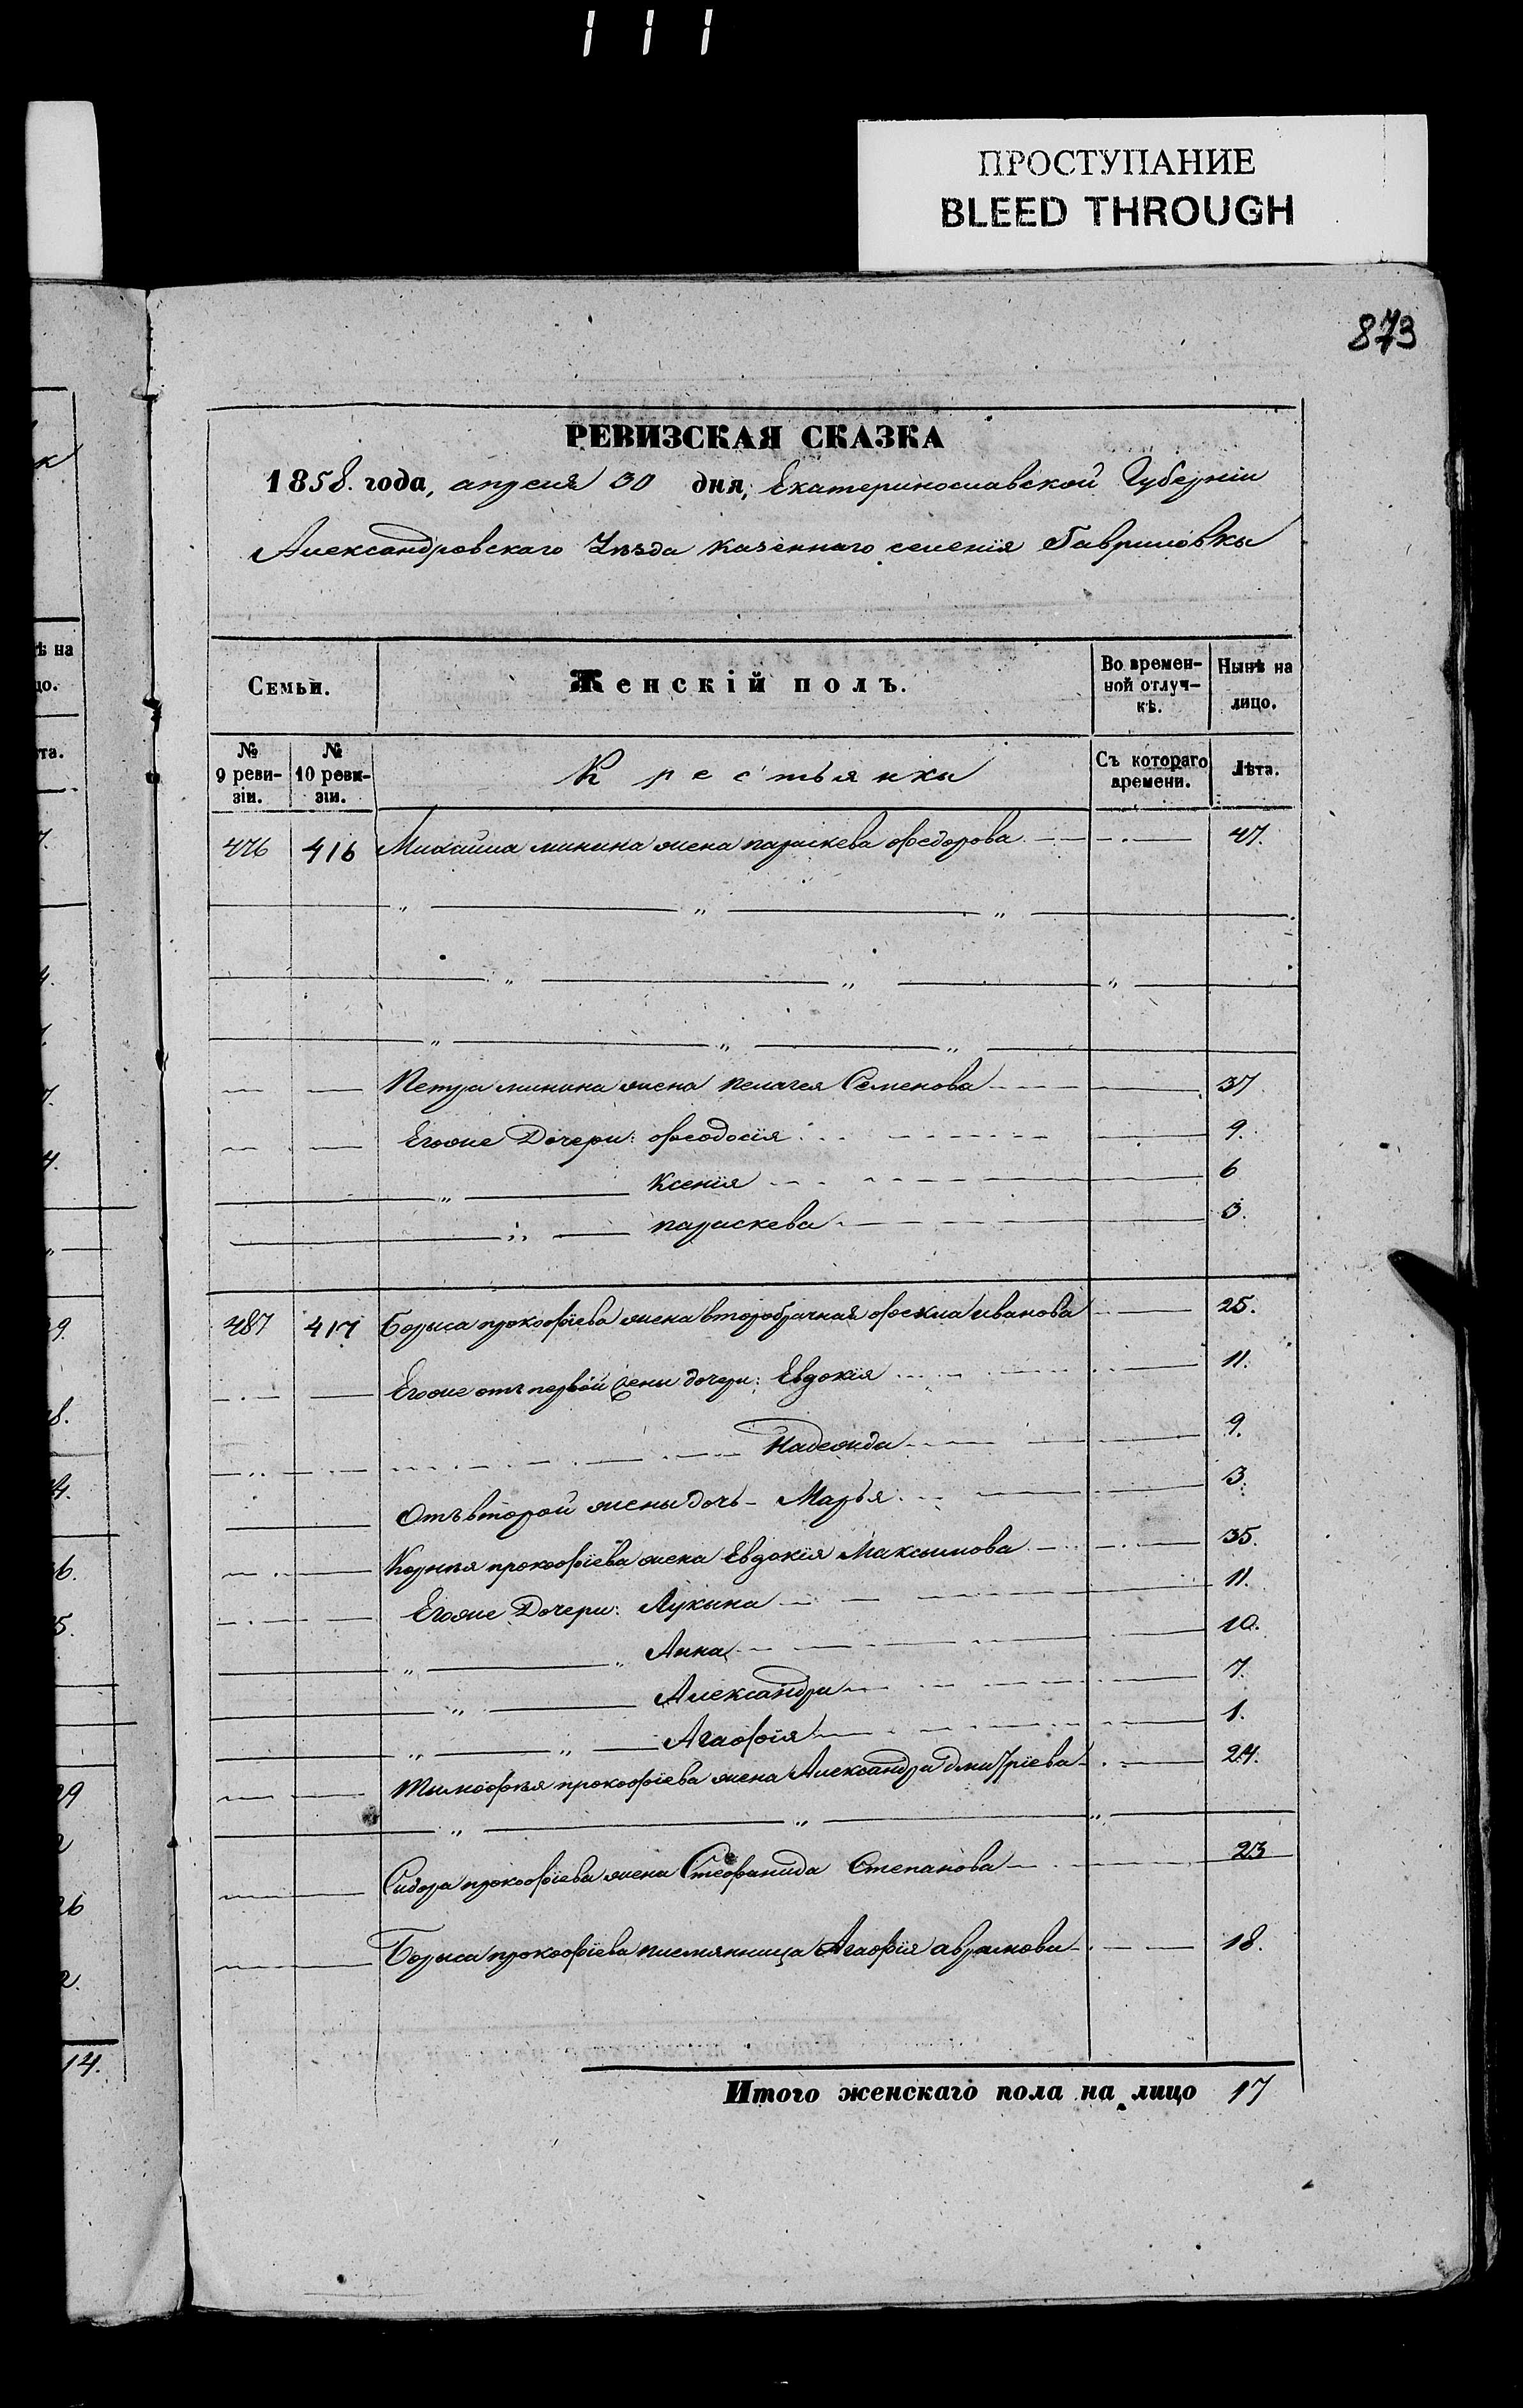 ПРОСТУПАНИЕ
BLEED THROUGH
873
РЕВИЗСКАЯ СКАЗКА
1858. года, апреля 30 дня, Екатеринославской Губерніи
Александровскаго Уѣзда казеннаго селенія Гавриловки
Семьи. Женскій полъ. Во времен-ной отлуч-кѣ. Нынѣ на лицо.
№ 9 реви-зіи. № 10 реви-зіи. Крестьянки Съ котораго времени. Лѣта.
476 416 Михайла минина жена параскева Федорова 47.
Петра минина жена пелагея Семенова 37
Егоже Дочери: Феодосія 9.
Ксенія 6
параскева 3.
487 417 Борыса прокофіева жена второбрачная Фекла иванова 25.
Егоже отъ первой жены дочери: Евдокія 11.
Надежда 9.
Отъ второй жены дочь - Марья 3.
Корнѣя прокофіева жена Евдокія Максымова 35.
Егоже Дочери: Лукына 11.
Анна 10.
Александра 7.
Агафія 1.
Тымофѣя прокофіева жена Александра дмитріева 24.
Сидора прокофіева жена Стефанида Степанова 23
Борыса прокофіева племянница Агафія аврамова 18.
Итого женскаго пола на лицо 17